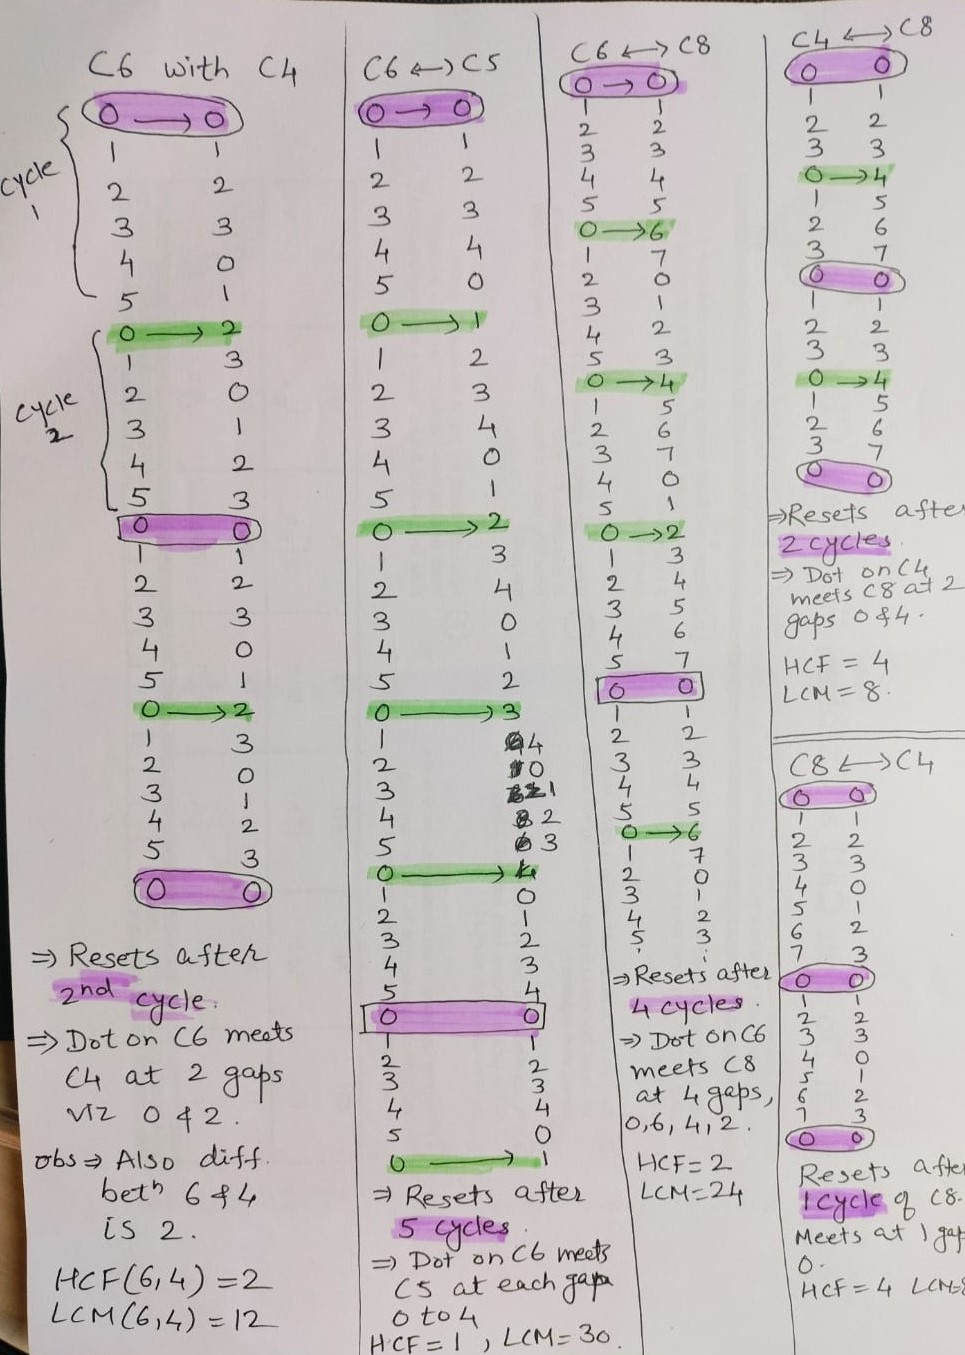 C6 with C4
cycle 1
0 → 0
1 1
2 2
3 3
4 0
5 1
cycle 2
0 → 2
1 3
2 0
3 1
4 2
5 3
0 0
1 1
2 2
3 3
4 0
5 1
0 → 2
1 3
2 0
3 1
4 2
5 3
0 0
⇒ Resets after
2nd cycle.
⇒ Dot on C6 meets
C4 at 2 gaps
viz 0 & 2.
obs ⇒ Also diff.
betn 6 & 4
is 2.
HCF(6,4) = 2
LCM(6,4) = 12
C6 ↔ C5
0 → 0
1 1
2 2
3 3
4 4
5 0
0 → 1
1 2
2 3
3 4
4 0
5 1
0 → 2
1 3
2 4
3 0
4 1
5 2
0 → 3
1 4
2 0
3 1
4 2
5 3
0 → 4
1 0
2 1
3 2
4 3
5 4
0 0
1 1
2 2
3 3
4 4
5 0
0 → 1
⇒ Resets after
5 cycles.
⇒ Dot on C6 meets
C5 at each gap
0 to 4
HCF = 1, LCM = 30.
C6 ↔ C8
0 → 0
1 1
2 2
3 3
4 4
5 5
0 → 6
1 7
2 0
3 1
4 2
5 3
0 → 4
1 5
2 6
3 7
4 0
5 1
0 → 2
1 3
2 4
3 5
4 6
5 7
0 0
1 1
2 2
3 3
4 4
5 5
0 → 6
1 7
2 0
3 1
4 2
5 3
⇒ Resets after
4 cycles.
⇒ Dot on C6
meets C8
at 4 gaps,
0,6,4,2.
HCF = 2
LCM = 24
C4 ↔ C8
0 0
1 1
2 2
3 3
0 → 4
1 5
2 6
3 7
0 0
1 1
2 2
3 3
0 → 4
1 5
2 6
3 7
0 0
⇒ Resets after
2 cycles.
⇒ Dot on C4
meets C8 at 2
gaps 0 & 4.
HCF = 4
LCM = 8.
C8 ↔ C4
0 0
1 1
2 2
3 3
4 0
5 1
6 2
7 3
0 0
1 1
2 2
3 3
4 0
5 1
6 2
7 3
0 0
Resets after
1 cycle of C8.
Meets at 1 gap
0.
HCF = 4 LCM=8